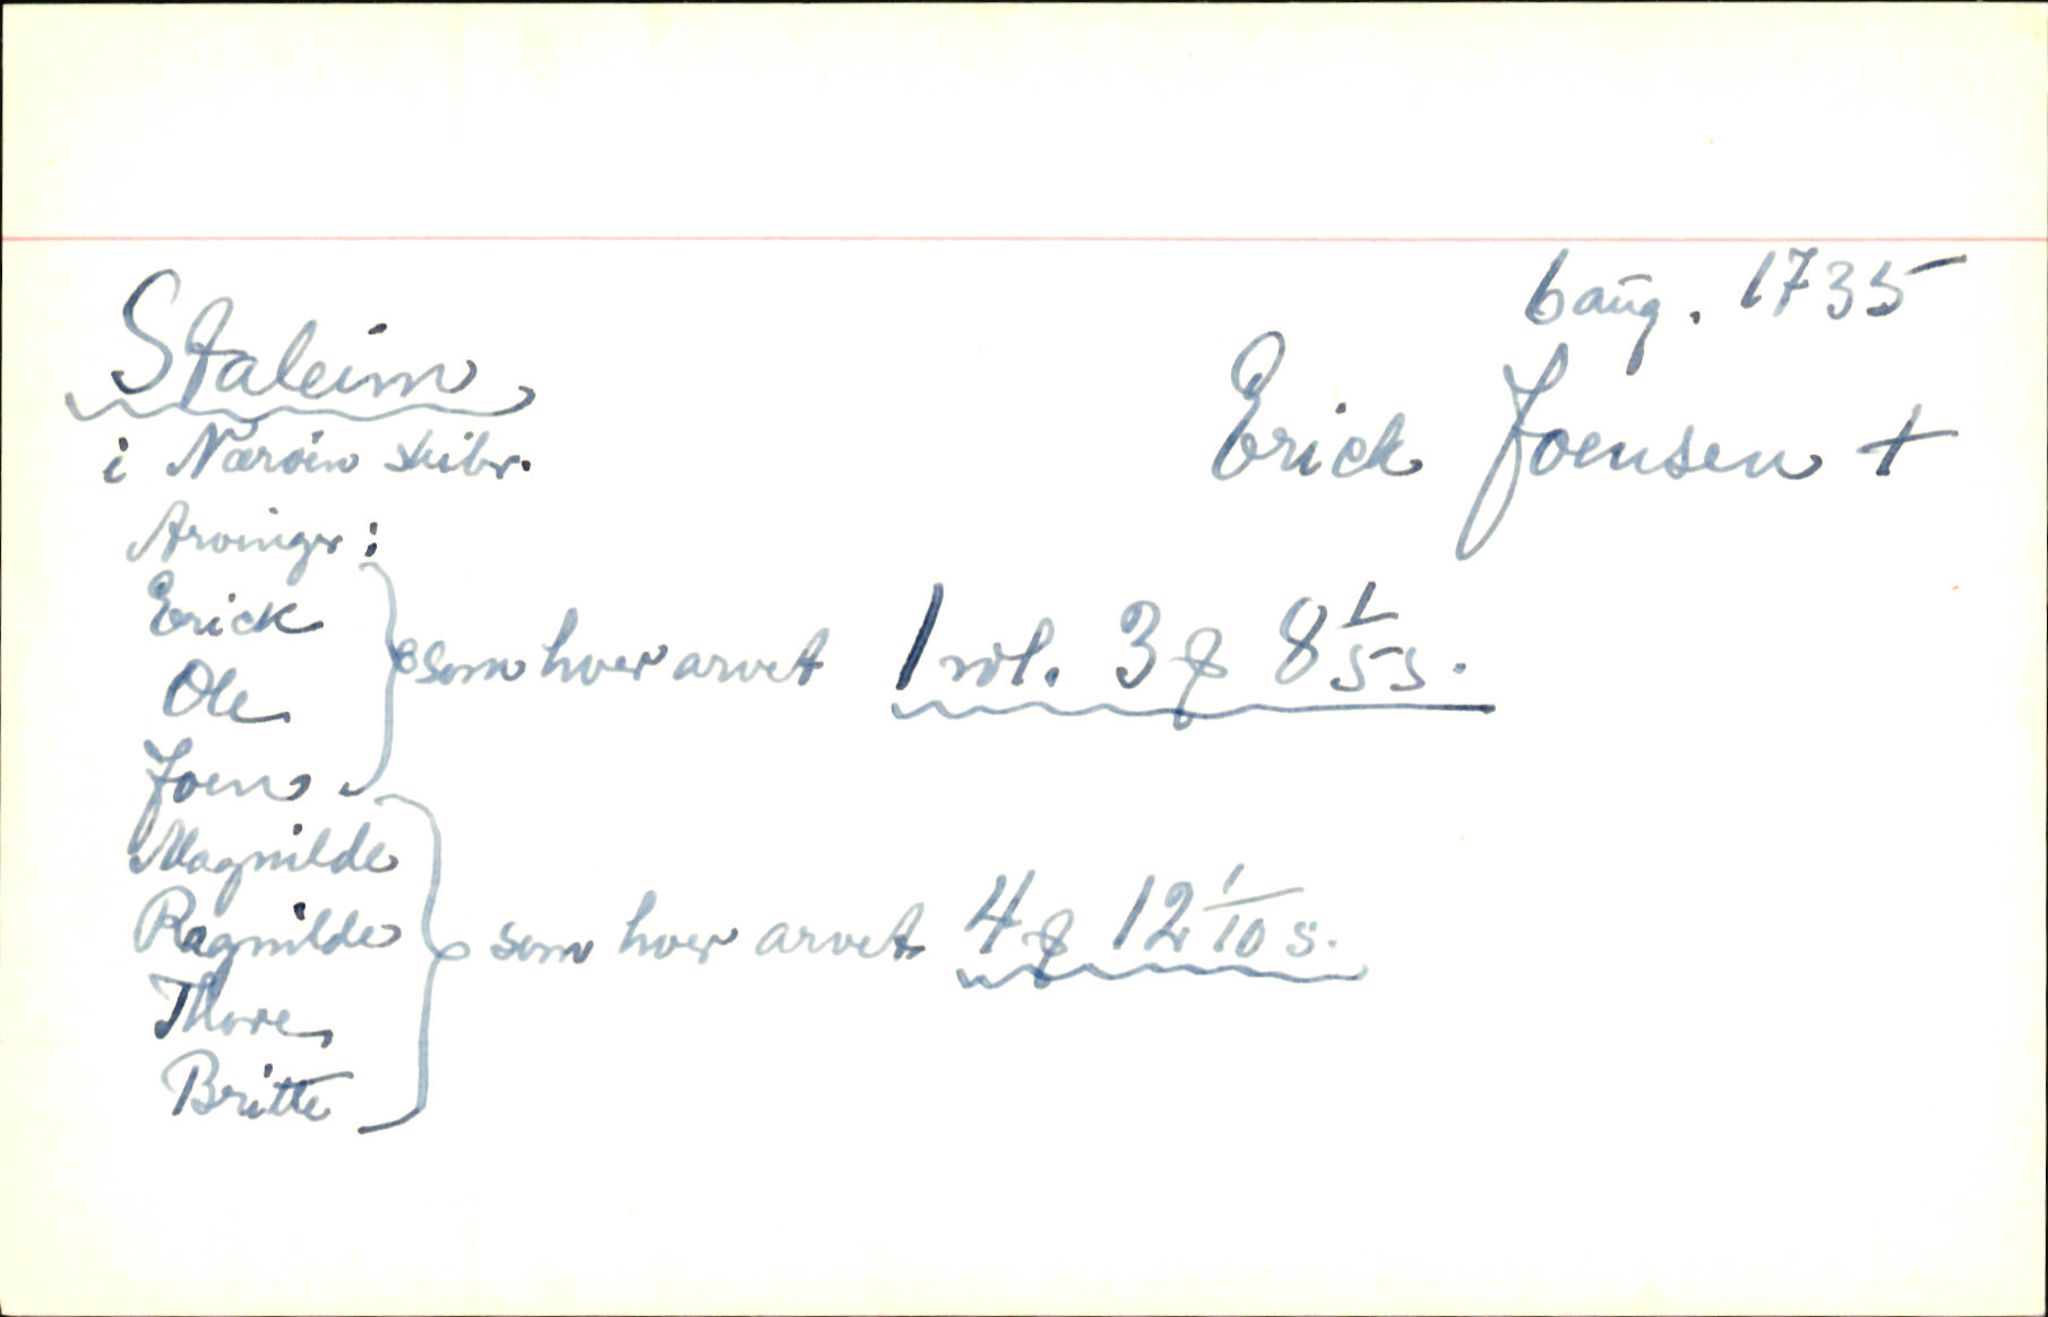 6 aug. 1735
Staleim
Erick Joensen +
i Nærøen skibr.
Arvinger:
Erick
Ole
som hver arvet 1 rdl. 3 ƒ 8 1/5 s.
Joen
Magnilde
Ragnilde
som hver arvet 4 ƒ 12 1/10 s.
Thore
Britte